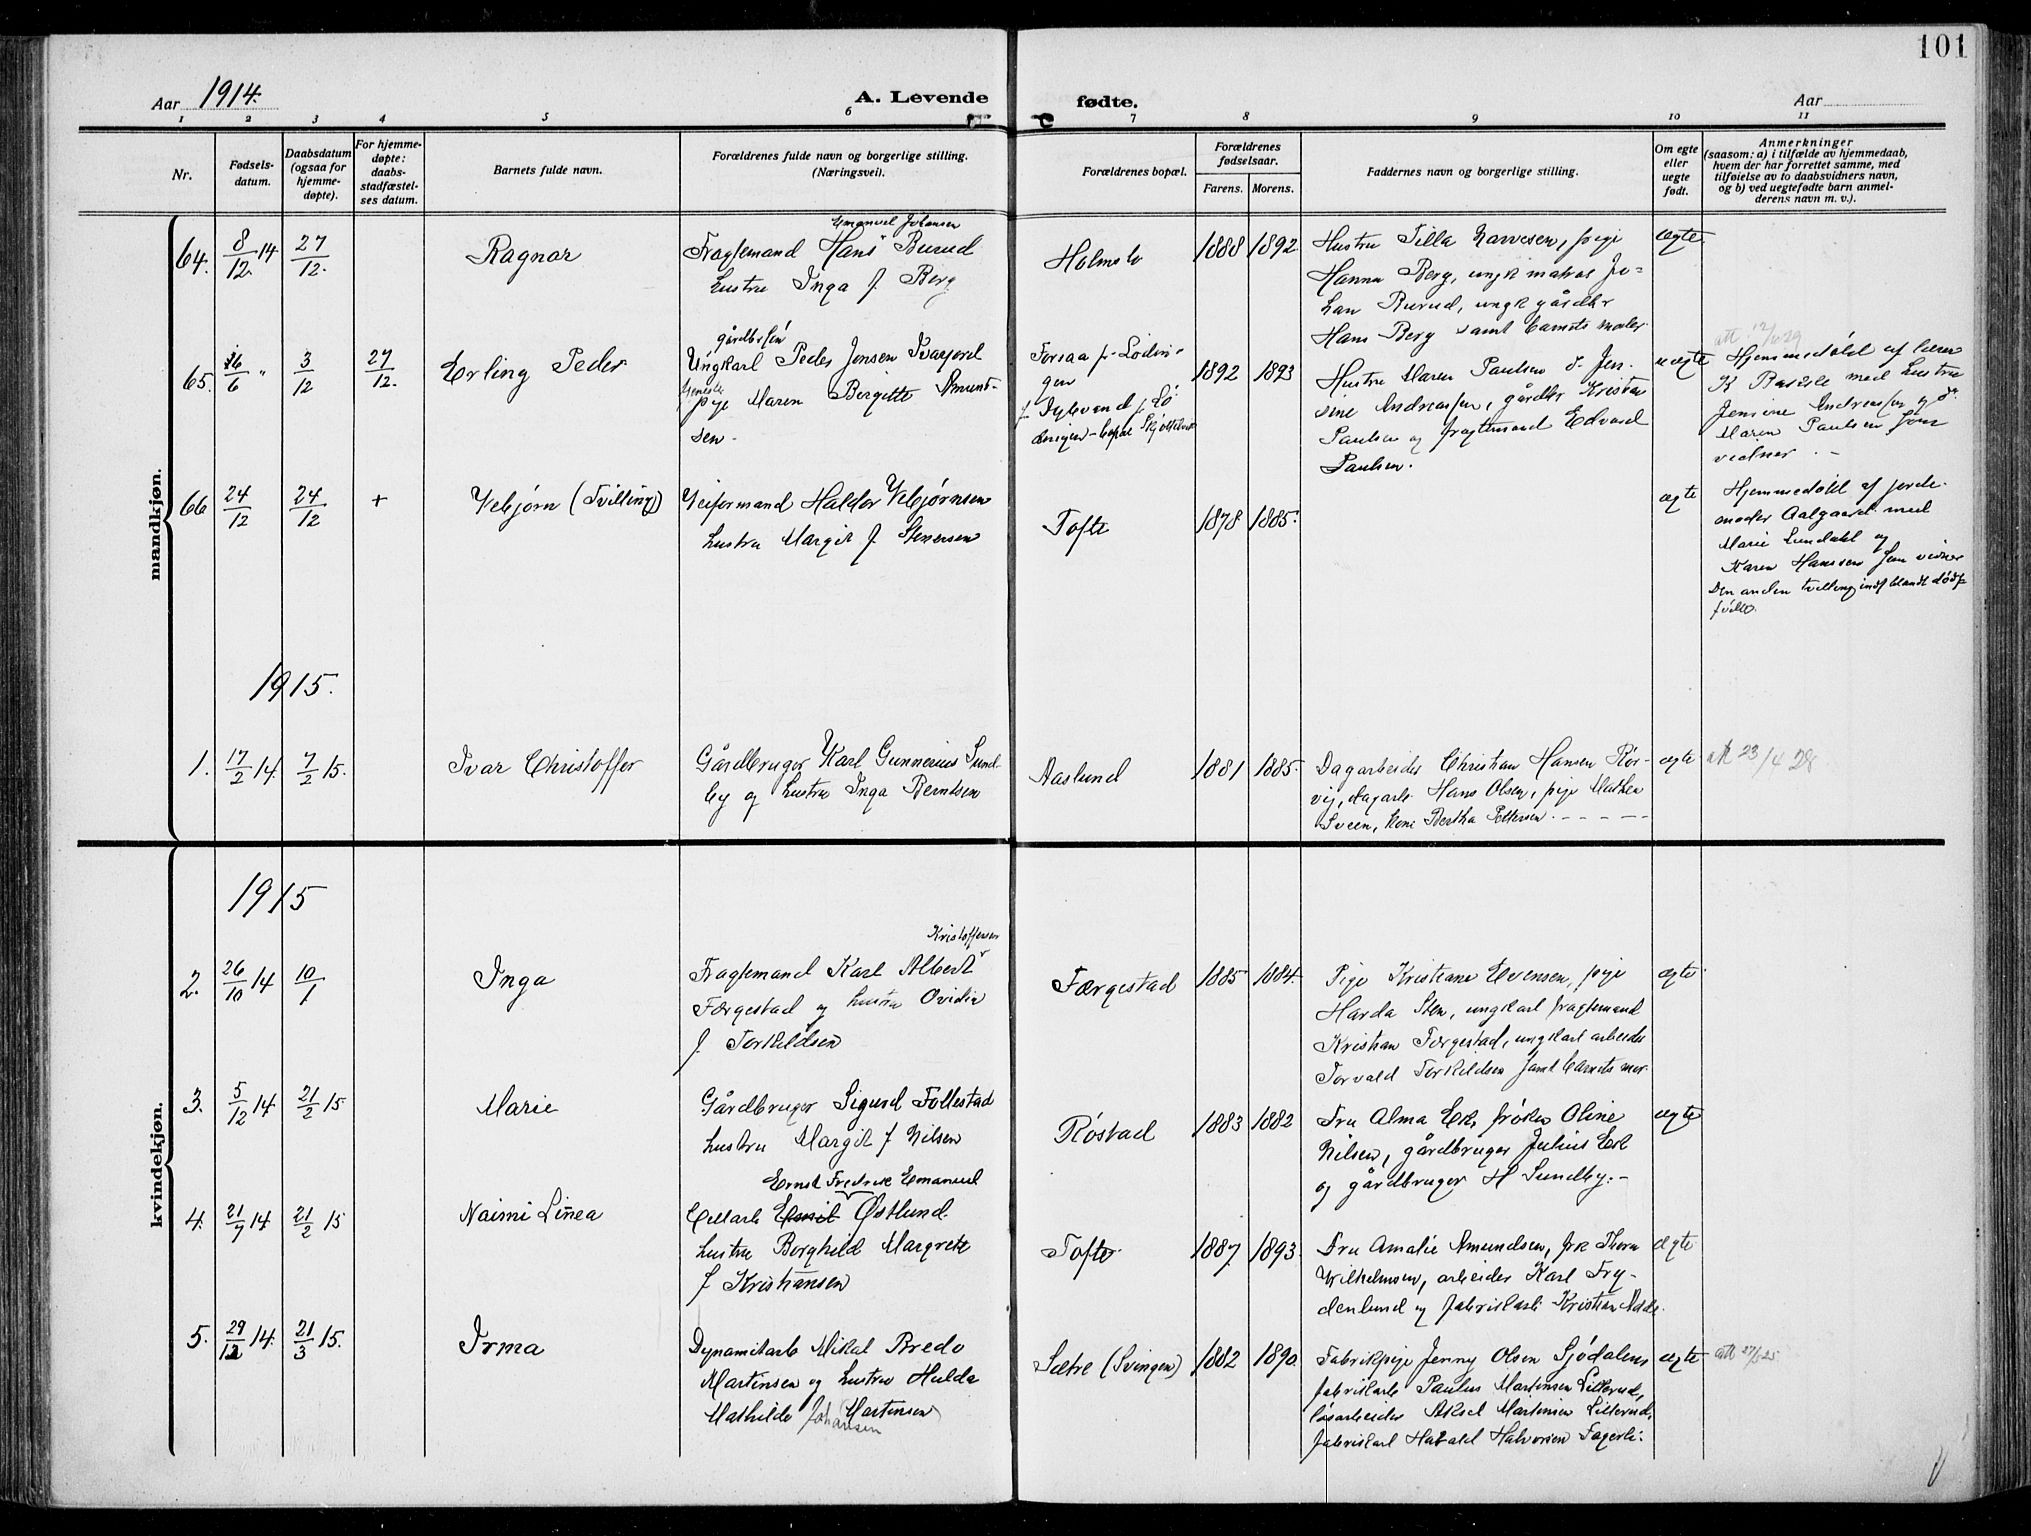 101
Aar 1914.
A. Levende fødte.
Aar
1 2 3 4 5 6 7 8 9 10 11
Nr.
Fødsels-
datum.
Daabsdatum
(ogsaa for
hjemme-
døpte).
For hjemme-
døpte:
daabs-
stadfæstel-
ses datum.
Barnets fulde navn.
Forældrenes fulde navn og borgerlige stilling.
(Næringsvei).
Forældrenes bopæl.
Forældrenes
fødselsaar.
Farens. Morens.
Faddernes navn og borgerlige stilling.
Om egte
eller
uegte
født.
Anmerkninger
(saasom: a) i tilfælde av hjemmedaab,
hvem der har forrettet samme, med
tilføielse av to daabsvidners navn,
og b) ved uegtefødte barn anmel-
derens navn m. v.).
mandkjøn.
64. 8/12 14 27/12. Ragnar
Emanuel Johansen
Fragtemand Hans Burud
hustru Inga f. Berg
Holmsbo 1888 1892
Hustru Tilla Narvesen, pige
Hanna Berg, ungk matros Jo-
han Burud, ungk gårdbr
Hans Berg samt barnets moder
ægte
65. 6/6 " 3/12 27/12. Erling Peder
gårdbrsøn
Ungkarl Peder Jensen Tvaajord
pige Maren Bergitte Amund-
sen.
Forsaa p. Lødin-
gen
1892 1893
Hustru Maren Paulsen d. Jen-
sine Andreassen, gårdbr Kristian
Paulsen og fragtemand Edvard
Paulsen.
uægte
att. 12/6 29
Hjemmedøbt af lærer
K Baisle med hustru
Jensine Andreassen og do
Maren Paulsen som
vidner. -
66 24/12 24/12 + Vebjørn (Tvilling)
Veiformand Haldor Vebjørnsen
hustru Margit f Stenersen
Tofte 1878. 1885.
ægte
Hjemmedøbt af jorde-
moder Aalgaard med
Marie Lundahl og
Karen Hanssen som vidner
Den anden tvilling indf blandt dødf
fødte.
1915.
1. 17/2 14. 7/2 15. Ivar Christoffer
Gårdbruger Karl Gunnerius Sund-
by og hustru Inga Berntsen
Aaslund 1881 1885.
Dagarbeider Christian Hansen Rør-
vig, dagarb. Hans Olsen, pige Mathea
Sveen, kone Bertha Pettersen. - - - - -
ægte
att 23/4 28
kvindekjøn.
1915
2. 26/10 14 10/1 Inga
Kristoffersen
Fragtemand Karl Albert
Færgestad og hustru Ovidia
f. Torkildsen
Færgestad 1885 1884.
Pige Kristiane Evensen, pige
Harda Sten, ungkarl fragtemand
Kristian Færgestad, ungkarl arbeider
Torvald Torkildsen samt barnets mor
ægte
3. 5/12 14 21/2 15 Marie
Gårdbruger Sigurd Follestad
hustru Margit f Nilsen
Røstad 1883 1882
Fru Alma Ek, frøken Oline
Nilsen, gårdbruger Julius Ek
og gårdbruger H Sundby. -
ægte
4. 21/7 14 21/2 15 Naimi Linea
Ernst Fredrik Emanuel
Cellarb Emil Østlund.
hustru Borghild Margrete
f Kristiansen
Tofte 1887. 1893.
Fru Amalie Amundsen, frk Thora
Wilhelmsen, arbeider Karl Fry-
denlund og fabrikarb Kristian
ægte
5. 29/12 14. 21/3 15. Irma
Dynamitarb Mikal Bredo
Martinsen og hustru Hulda
Mathilde Martinsen
Johansen
Sætre (Svingen) 1882 1890.
Fabrikpige Jenny Olsen Sjødalen,
fabrikarb Paulus Martinsen Lillerud,
løsarbeider Aksel Martinsen Lillerud,
fabrikarb Harald Halvorsen Fagerli.
ægte
att 27/5 25